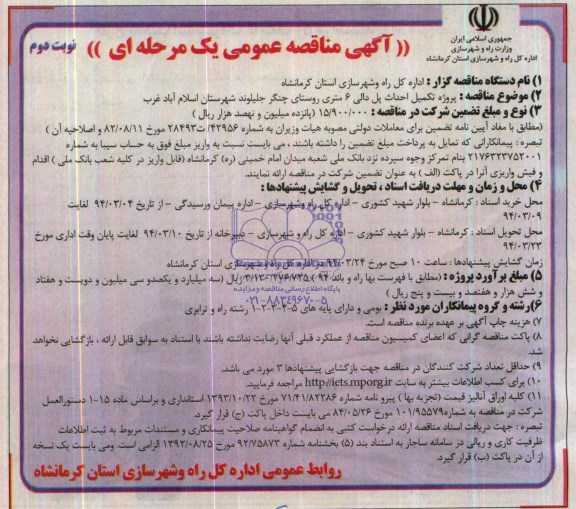 جمهوری اسلامی ایران
وزارت راه و شهرسازی
اداره کل راه و شهرسازی استان کرمانشاه
(( آگهی مناقصه عمومی یک مرحله ای ))
نوبت دوم
۱) نام دستگاه مناقصه گزار : اداره کل راه وشهرسازی استان کرمانشاه
۲) موضوع مناقصه : پروژه تکمیل احداث پل دالی ۶ متری روستای چنگر جلیلوند شهرستان اسلام آباد غرب
۳) نوع و مبلغ تضمین شرکت در مناقصه : ۱۵/۹۰۰/۰۰۰ (پانزده میلیون و نهصد هزار ریال )
(مطابق با مفاد آیین نامه تضمین برای معاملات دولتی مصوبه هیات وزیران به شماره ۴۲۹۵۶/ت۲۸۴۹۳ مورخ ۸۲/۰۸/۱۱ و اصلاحیه آن )
تبصره : پیمانکارانی که تمایل به پرداخت مبلغ تضمین را داشته باشند ، می بایست نسبت به واریز مبلغ فوق به حساب سیبا به شماره
۲۱۷۶۴۲۳۷۵۲۰۰۱ بنام تمرکز وجوه سپرده نزد بانک ملی شعبه میدان امام خمینی (ره) کرمانشاه (قابل واریز در کلیه شعب بانک ملی ) اقدام
و فیش واریزی آنرا در پاکت (الف ) به عنوان تضمین شرکت در مناقصه ارائه نمایند.
۴) محل و زمان و مهلت دریافت اسناد ، تحویل و گشایش پیشنهادها :
محل خرید اسناد : کرمانشاه - بلوار شهید کشوری - اداره کل راه وشهرسازی - اداره پیمان ورسیدگی - از تاریخ ۹۴/۰۳/۰۴ لغایت
۹۴/۰۳/۰۹
محل تحویل اسناد : کرمانشاه - بلوار شهید کشوری - اداره کل راه و شهرسازی - دبیرخانه از تاریخ ۹۴/۰۳/۱۰ لغایت پایان وقت اداری مورخ
۹۴/۰۳/۲۳
زمان گشایش پیشنهادها : ساعت ۱۰ صبح مورخ ۹۴/۰۳/۲۴ در اداره کل راه و شهرسازی استان کرمانشاه
۵) مبلغ برآورد پروژه : (مطابق با فهرست بها راه و باند ۹۴) ۳/۱۳۰/۴۷۶/۷۳۵ ریال (سه میلیارد و یکصدو سی میلیون و دویست و هفتاد
و شش هزار و هفتصد و بیست و پنج ریال )
۶) رشته و گروه پیمانکاران مورد نظر : بومی و دارای پایه های ۵-۴-۳-۲-۱ رشته راه و ترابری
۷) هزینه چاپ آگهی بر عهده برنده مناقصه است.
۸) پاکت مناقصه گرانی که اعضای کمیسیون مناقصه از عملکرد قبلی آنها رضایت نداشته باشند با استناد به سوابق قابل ارائه ، بازگشایی نخواهد
شد.
۹) حداقل تعداد شرکت کنندگان در مناقصه جهت بازگشایی پیشنهادها ۳ مورد می باشد.
۱۰) برای کسب اطلاعات بیشتر به سایت http://iets.mporg.ir مراجعه فرمایید.
۱۱) کلیه اوراق آنالیز قیمت (تجزیه بها ) پیرو نامه شماره ۷۱/۴۱/۸۲۳۸۶ مورخ ۱۳۹۳/۱۰/۲۲ استانداری و براساس ماده ۱۵-۱ دستورالعمل
شرکت در مناقصه به شماره۱۰۱/۹۵۵۷۹ مورخ ۸۴/۰۵/۲۶ می بایست داخل پاکت (ج) قرار گیرد.
تبصره : جهت دریافت اسناد مناقصه ارائه درخواست کتبی به انضمام گواهینامه صلاحیت پیمانکاری و مستندات مربوط به ثبت اطلاعات
ظرفیت کاری و ریالی در سامانه ساجار به استناد بند (۵) بخشنامه شماره ۹۲/۷۵۸۷۳ مورخ ۱۳۹۲/۰۸/۲۵ الزامی است ومی بایست یک نسخه
از آن در پاکت (ب) قرار گیرد.
روابط عمومی اداره کل راه وشهرسازی استان کرمانشاه
پایگاه اطلاع رسانی مناقصه و مزایده
۰۲۱-۸۸۳۴۹۶۷۰-۵